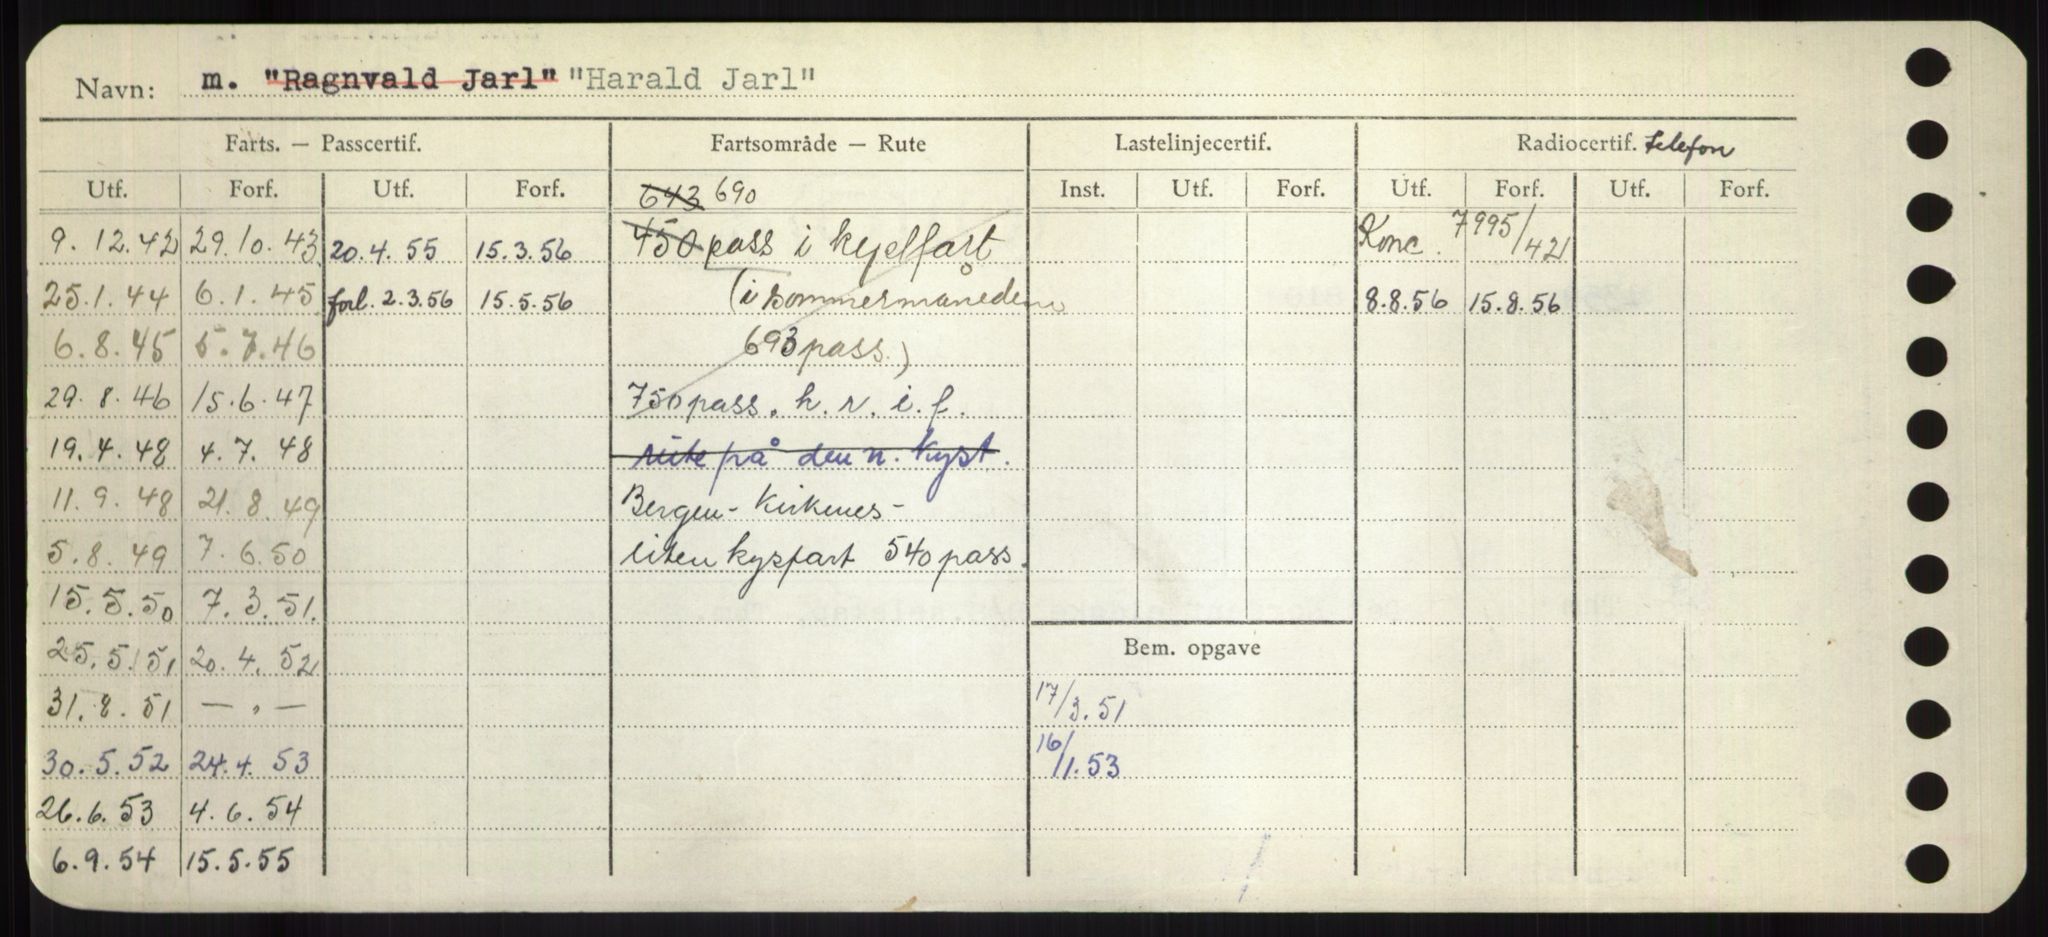 Navn: m. "Ragnvald Jarl" "Harald Jarl"
Farts. — Passcertif. Fartsområde — Rute Lastelinjecertif. Radiocertif. telefon
Utf. Forf. Utf. Forf. 643 690 Inst. Utf. Forf. Utf. Forf. Utf. Forf.
9. 12. 42 29. 10. 43 20. 4. 55 15. 3. 56 450 pass i kyelfart Konc. 7995/42
25. 1. 44 6. 1. 45 forl. 2. 3. 56 15. 5. 56 (i sommermånedene 8. 8. 56 15. 8. 56
6. 8. 45 5. 7. 46 693 pass.)
29. 8. 46 15. 6. 47 750 pass. h. r. i. f.
19. 4. 48 4. 7. 48 rute på den n. kyst.
11. 9. 48 21. 8. 49 Bergen - Kirkenes -
5. 8. 49 7. 6. 50 liten kysfart 540 pass.
15. 5. 50 7. 3. 51.
25. 5. 51 20. 4. 52 Bem. opgave
31. 8. 51 — " — 17/3. 51
30. 5. 52 24. 4. 53 16/1. 53
26. 6. 53 4. 6. 54
6. 9. 54 15. 5. 55